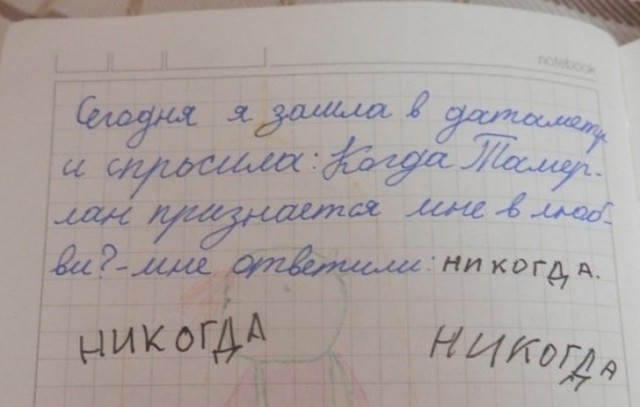 notebook
Сегодня я зашла в датаметр
и спросила: Когда Тамер-
лан признается мне в люб-
ви?-мне ответили: НИКОГДА.
НИКОГДА НИКОГДА